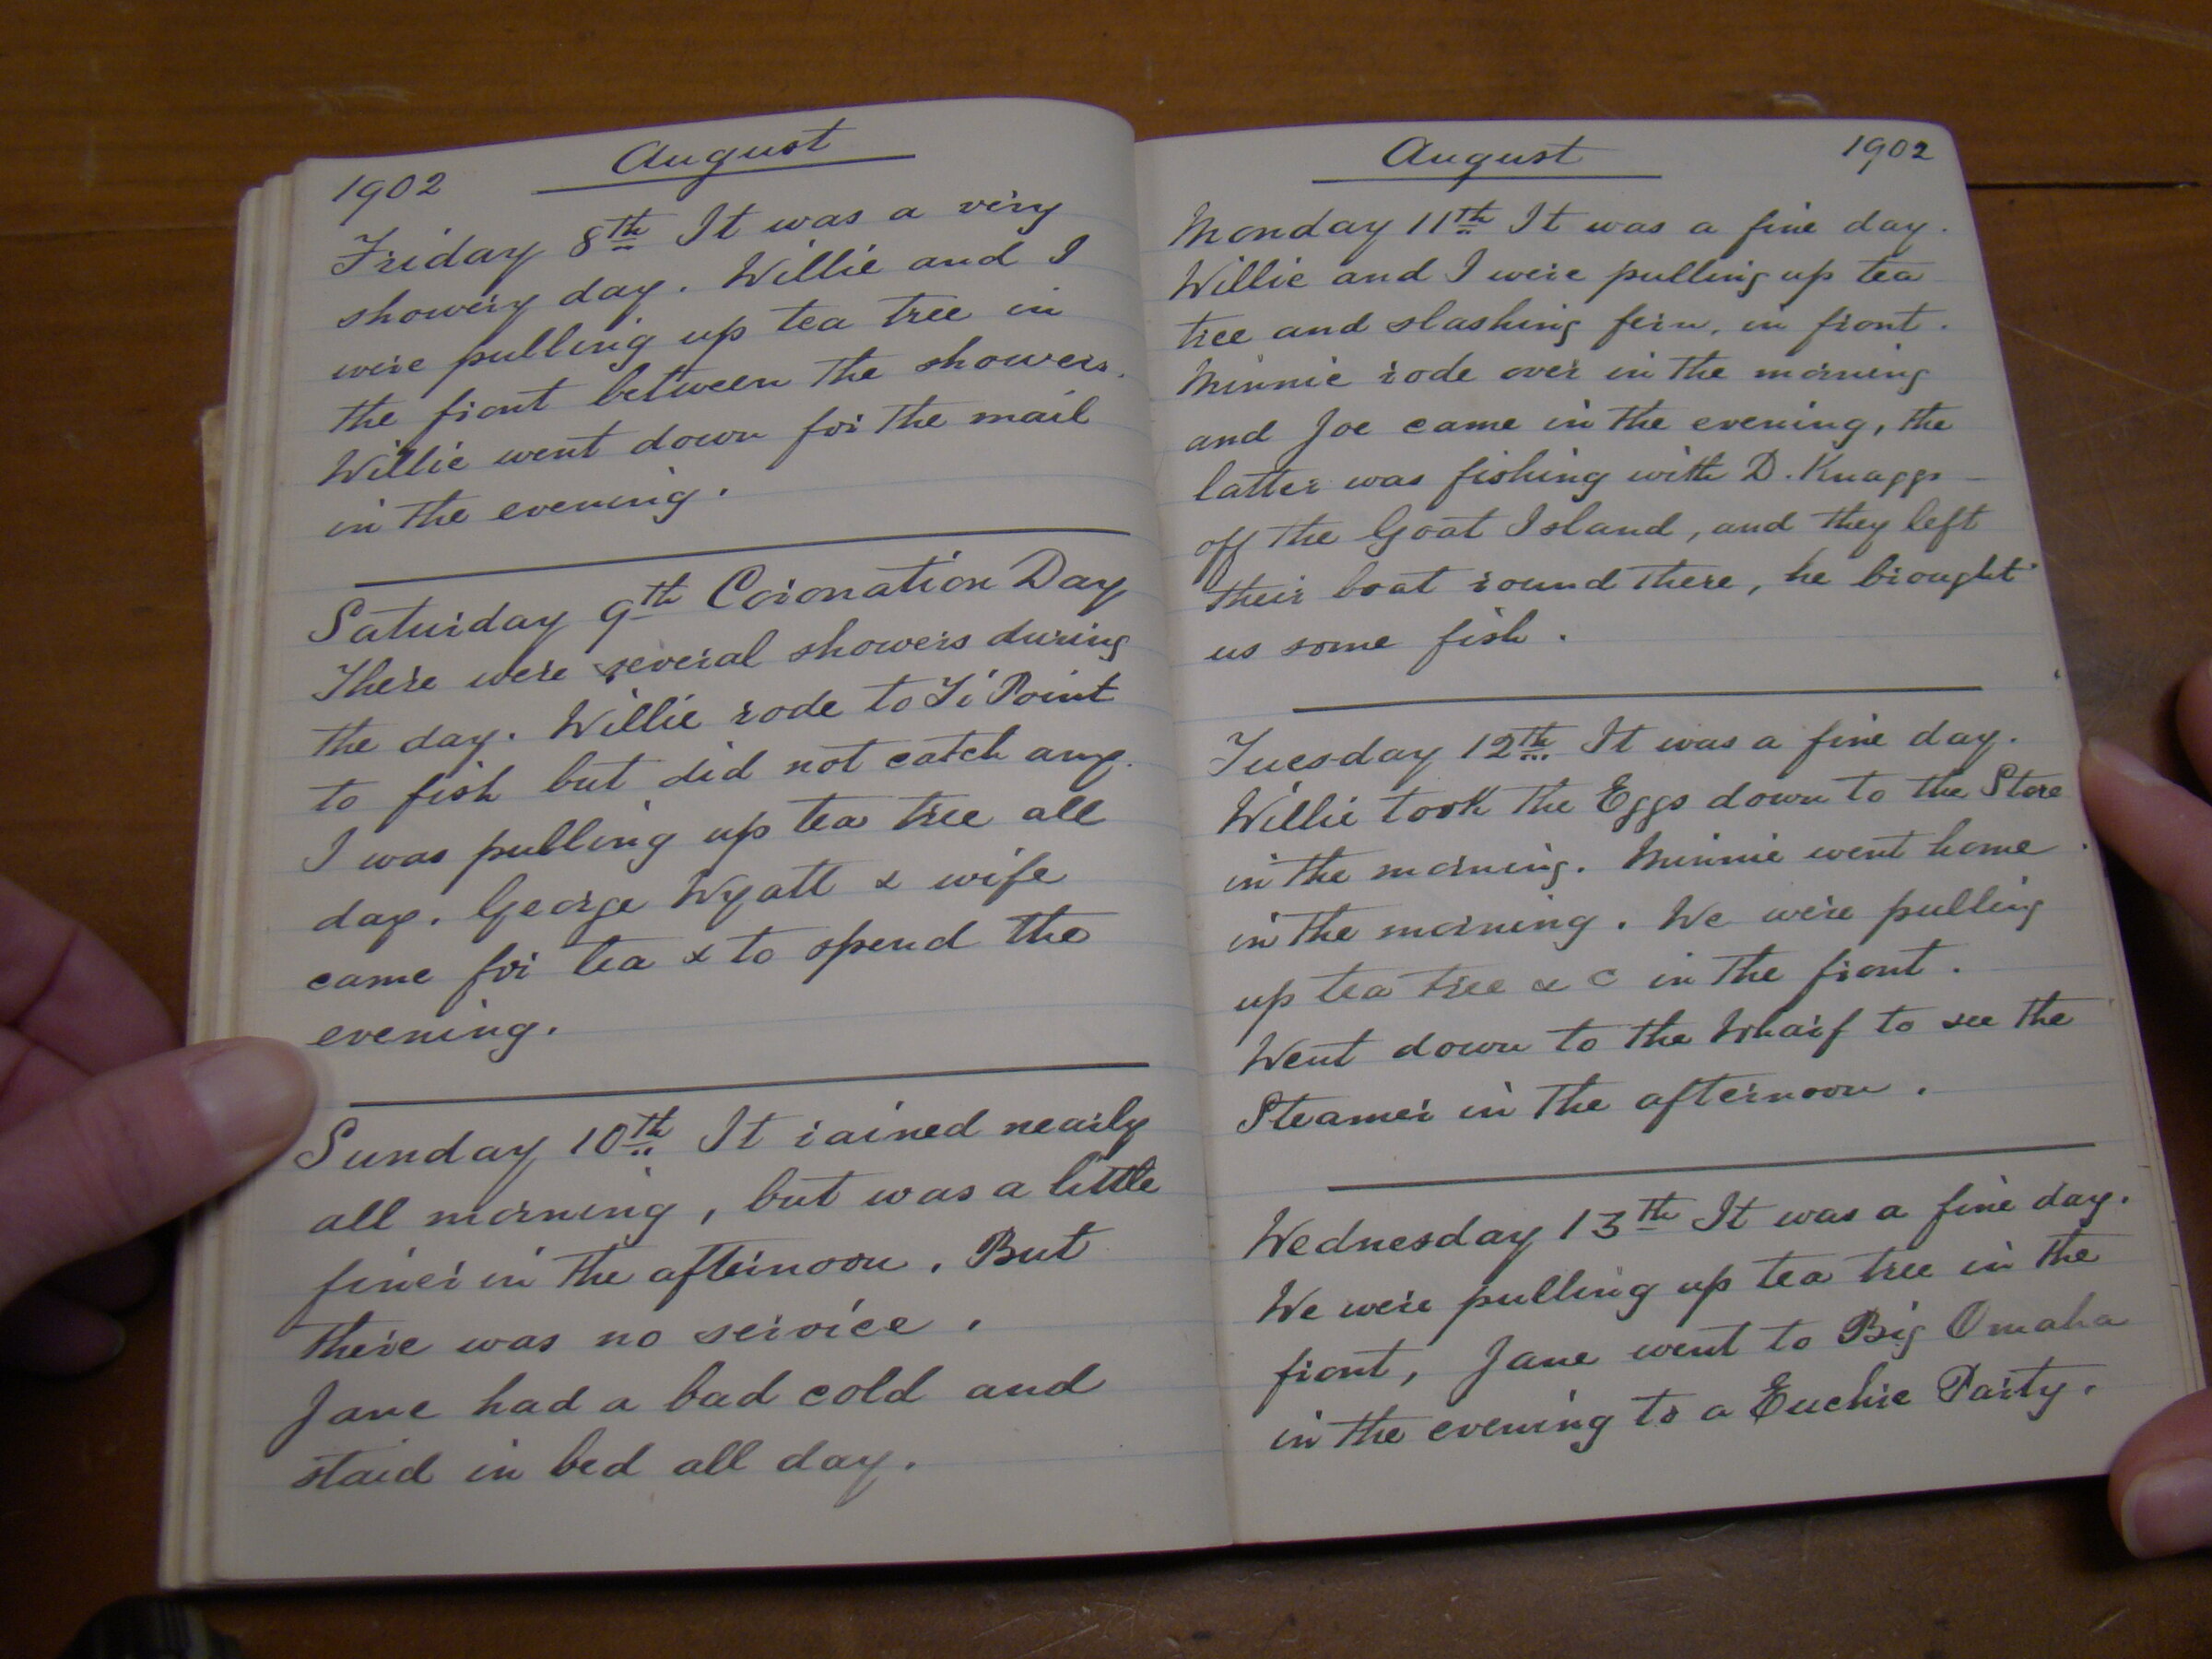 1902 August
Friday 8th It was a very
showery day. Willie and I
were pulling up tea tree in
the front between the showers.
Willie went down for the mail
in the evening.
Saturday 9th Coronation Day
There were several showers during
the day. Willie rode to Ti Point
to fish but did not catch any.
I was pulling up tea tree all
day. George Wyatt & wife
came for tea & to spend the
evening.
Sunday 10th It rained nearly
all morning, but was a little
finer in the afternoon. But
there was no service.
Jane had a bad cold and
staid in bed all day.
August 1902
Monday 11th It was a fine day.
Willie and I were pulling up tea
tree and slashing fern, in front.
Minnie rode over in the morning
and Joe came in the evening, the
latter was fishing with D. Knaggs
off the Goat Island, and they left
their boat round there, he brought
us some fish.
Tuesday 12th It was a fine day.
Willie took the Eggs down to the Store
in the morning. Minnie went home
in the morning. We were pulling
up tea tree & c in the front.
Went down to the Wharf to see the
Steamer in the afternoon.
Wednesday 13th It was a fine day.
We were pulling up tea tree in the
front, Jane went to Big Omaha
in the evening to a Euchre Party.